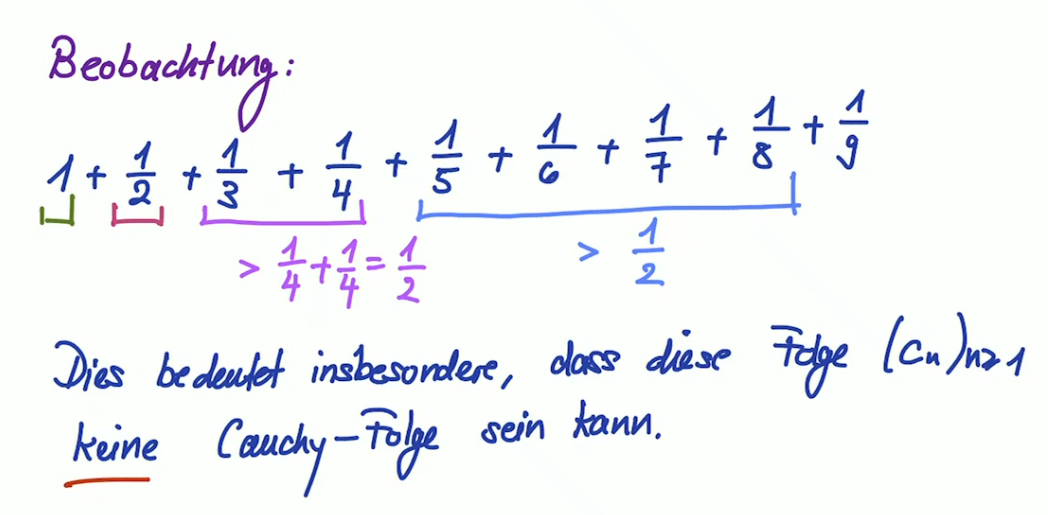 Beobachtung:
1 + 1/2 + 1/3 + 1/4 + 1/5 + 1/6 + 1/7 + 1/8 + 1/9
> 1/4 + 1/4 = 1/2 > 1/2
Dies bedeutet insbesondere, dass diese Folge (Cn)n≥1
keine Cauchy-Folge sein kann.